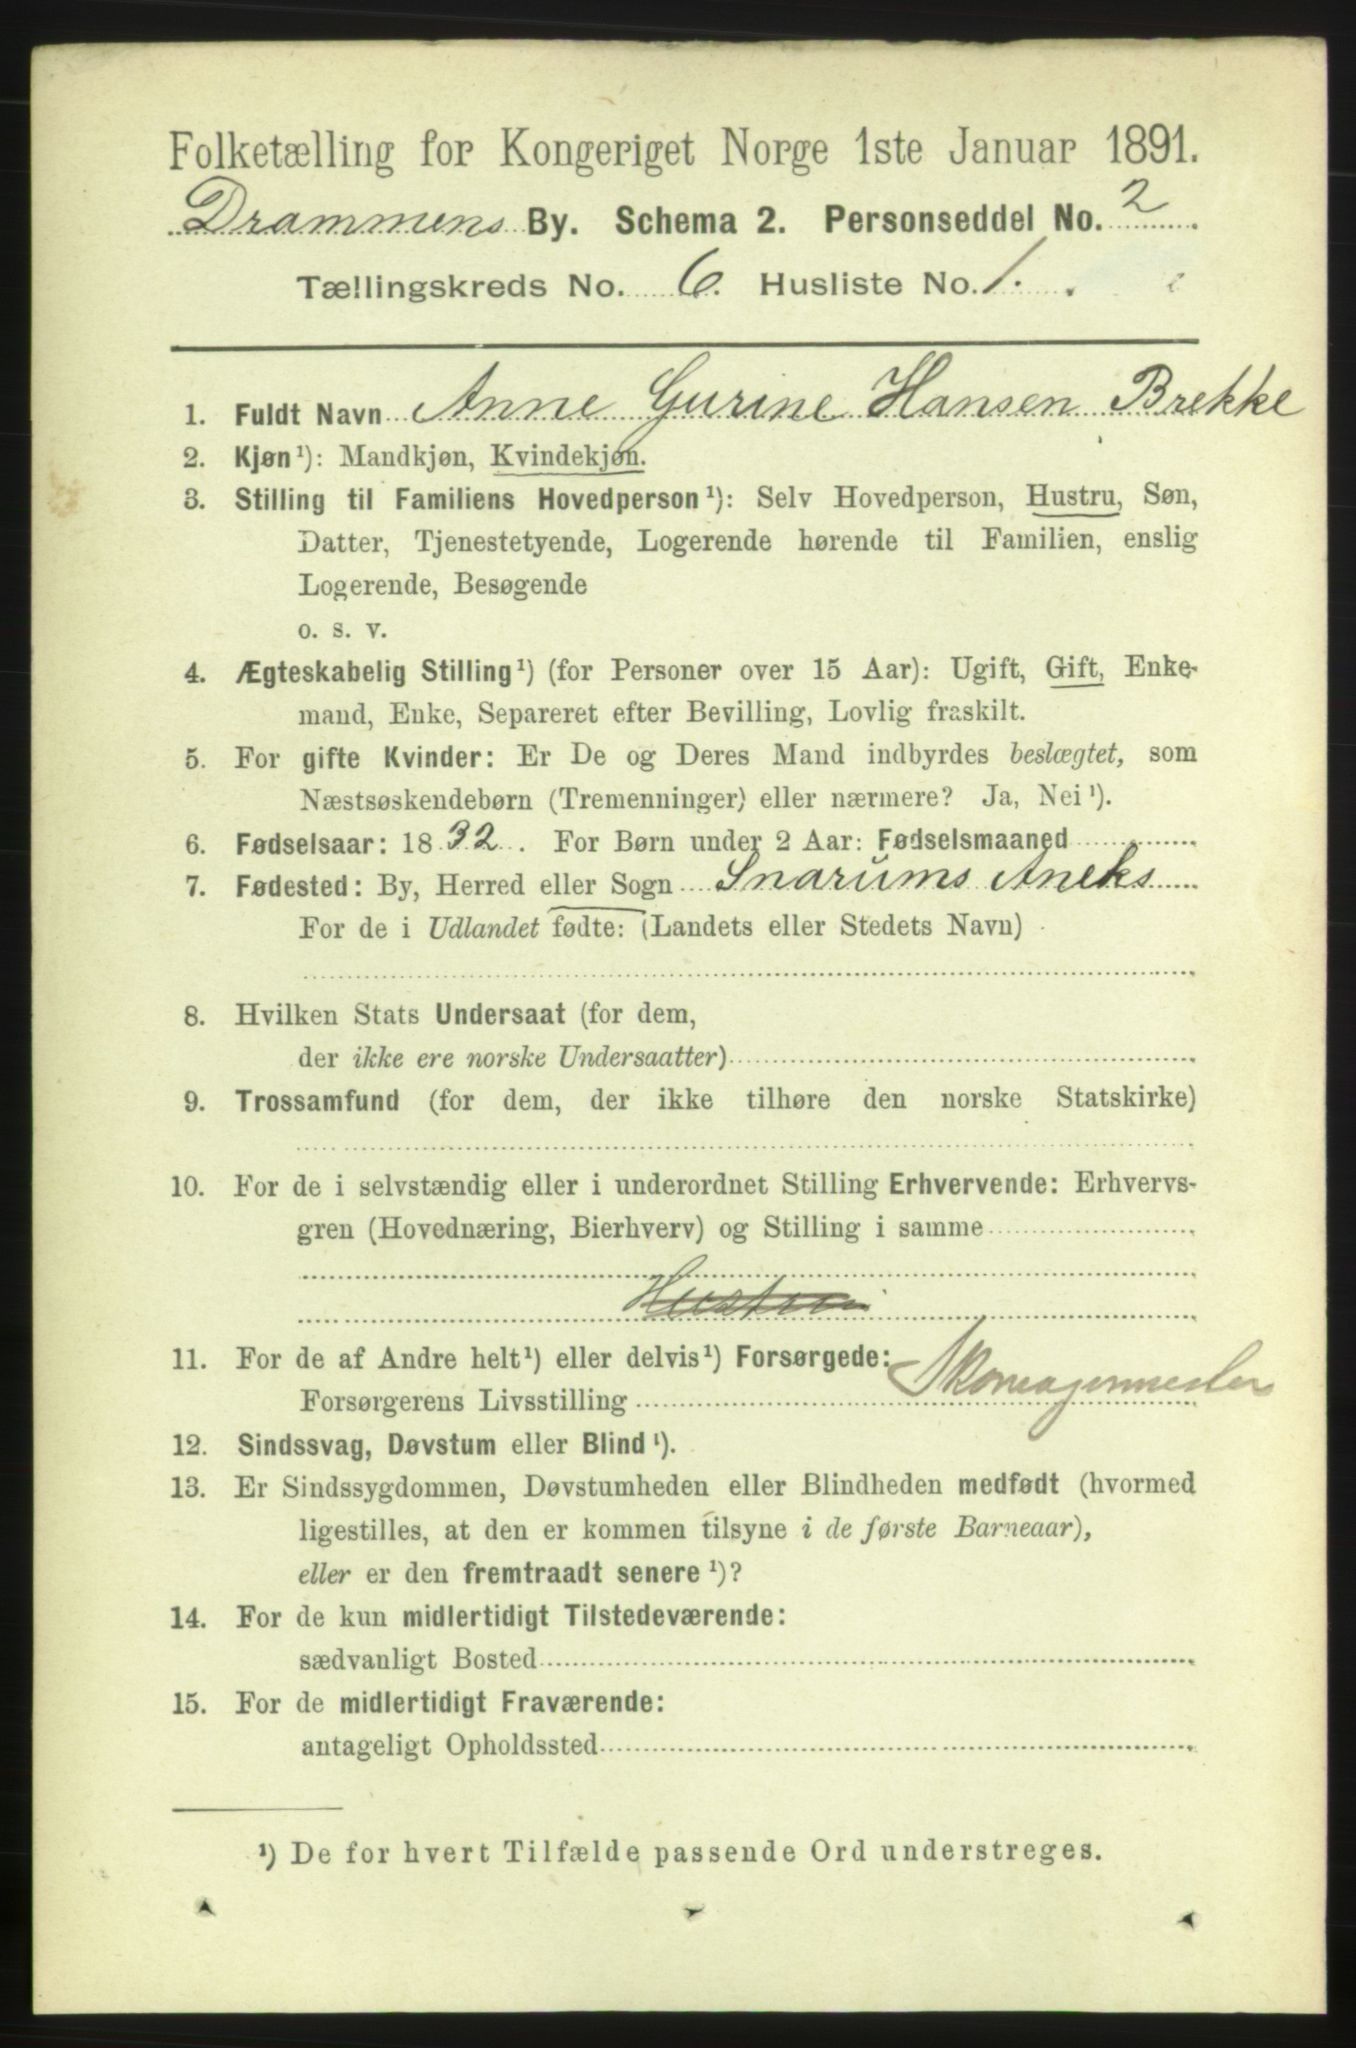 Folketælling for Kongeriget Norge 1ste Januar 1891.
Drammens By. Schema 2. Personseddel No. 2
Tællingskreds No. 6. Husliste No. 1.
1. Fuldt Navn Anne Gurine Hansen Brekke
2. Kjøn¹): Mandkjøn, Kvindekjøn.
3. Stilling til Familiens Hovedperson¹): Selv Hovedperson, Hustru, Søn,
Datter, Tjenestetyende, Logerende hørende til Familien, enslig
Logerende, Besøgende
o. s. v.
4. Ægteskabelig Stilling¹) (for Personer over 15 Aar): Ugift, Gift, Enke-
mand, Enke, Separeret efter Bevilling, Lovlig fraskilt.
5. For gifte Kvinder: Er De og Deres Mand indbyrdes beslægtet, som
Næstsøskendebørn (Tremenninger) eller nærmere? Ja, Nei¹).
6. Fødselsaar: 1832. For Børn under 2 Aar: Fødselsmaaned
7. Fødested: By, Herred eller Sogn Snarums Aneks
For de i Udlandet fødte: (Landets eller Stedets Navn)
8. Hvilken Stats Undersaat (for dem,
der ikke ere norske Undersaatter)
9. Trossamfund (for dem, der ikke tilhøre den norske Statskirke)
10. For de i selvstændig eller i underordnet Stilling Erhvervende: Erhvervs-
gren (Hovednæring, Bierhverv) og Stilling i samme
Hustru
11. For de af Andre helt¹) eller delvis¹) Forsørgede:
Forsørgerens Livsstilling Skomagermester
12. Sindssvag, Døvstum eller Blind¹).
13. Er Sindssygdommen, Døvstumheden eller Blindheden medfødt (hvormed
ligestilles, at den er kommen tilsyne i de første Barneaar),
eller er den fremtraadt senere¹)?
14. For de kun midlertidigt Tilstedeværende:
sædvanligt Bosted
15. For de midlertidigt Fraværende:
antageligt Opholdssted
¹) De for hvert Tilfælde passende Ord understreges.